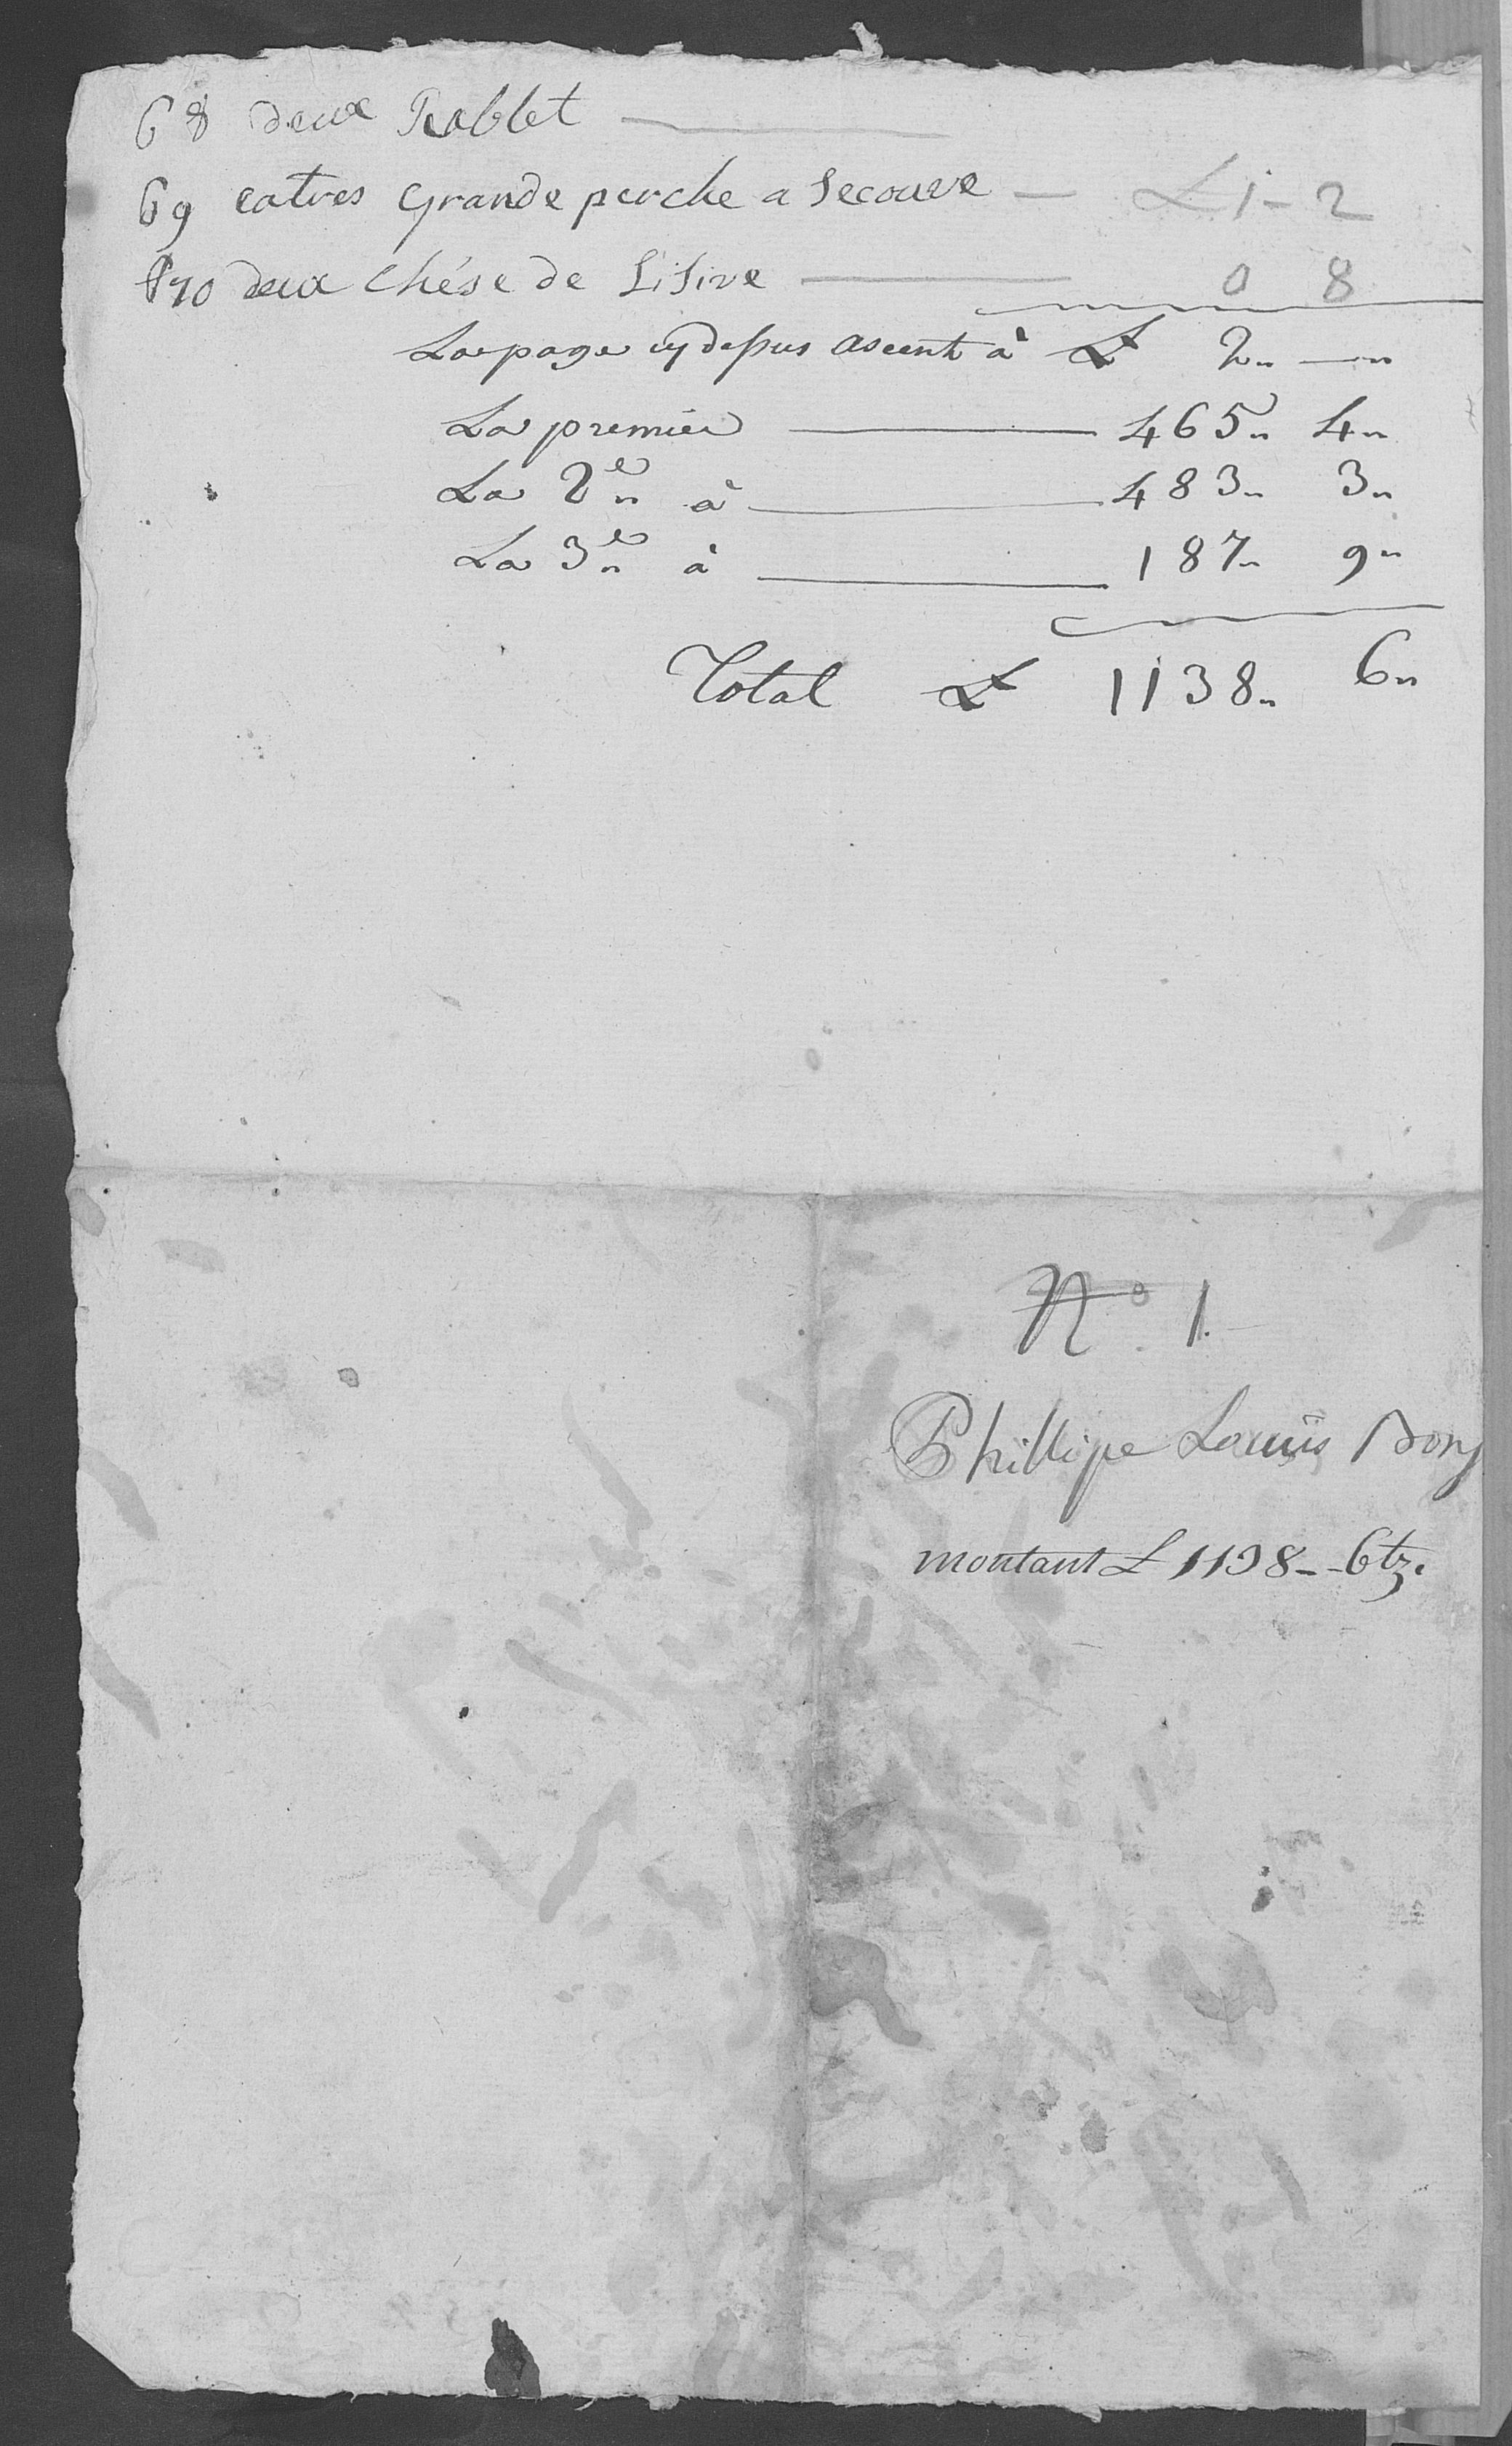 68 deux Rablet —
69 catres grande perche a Secoure — L 1 - 2
70 deux chése de Lisive — 0 8
La page cy dessus ascent à L 2 „ — „
La premier — 465 „ 4 „
La 2e „ à — 483 „ 3 „
La 3e „ à — 187 „ 9 „
Total L 1138 „ 6 „
No 1.
Phillipe Louis Bony
montant L 1138 - - 6 tz.